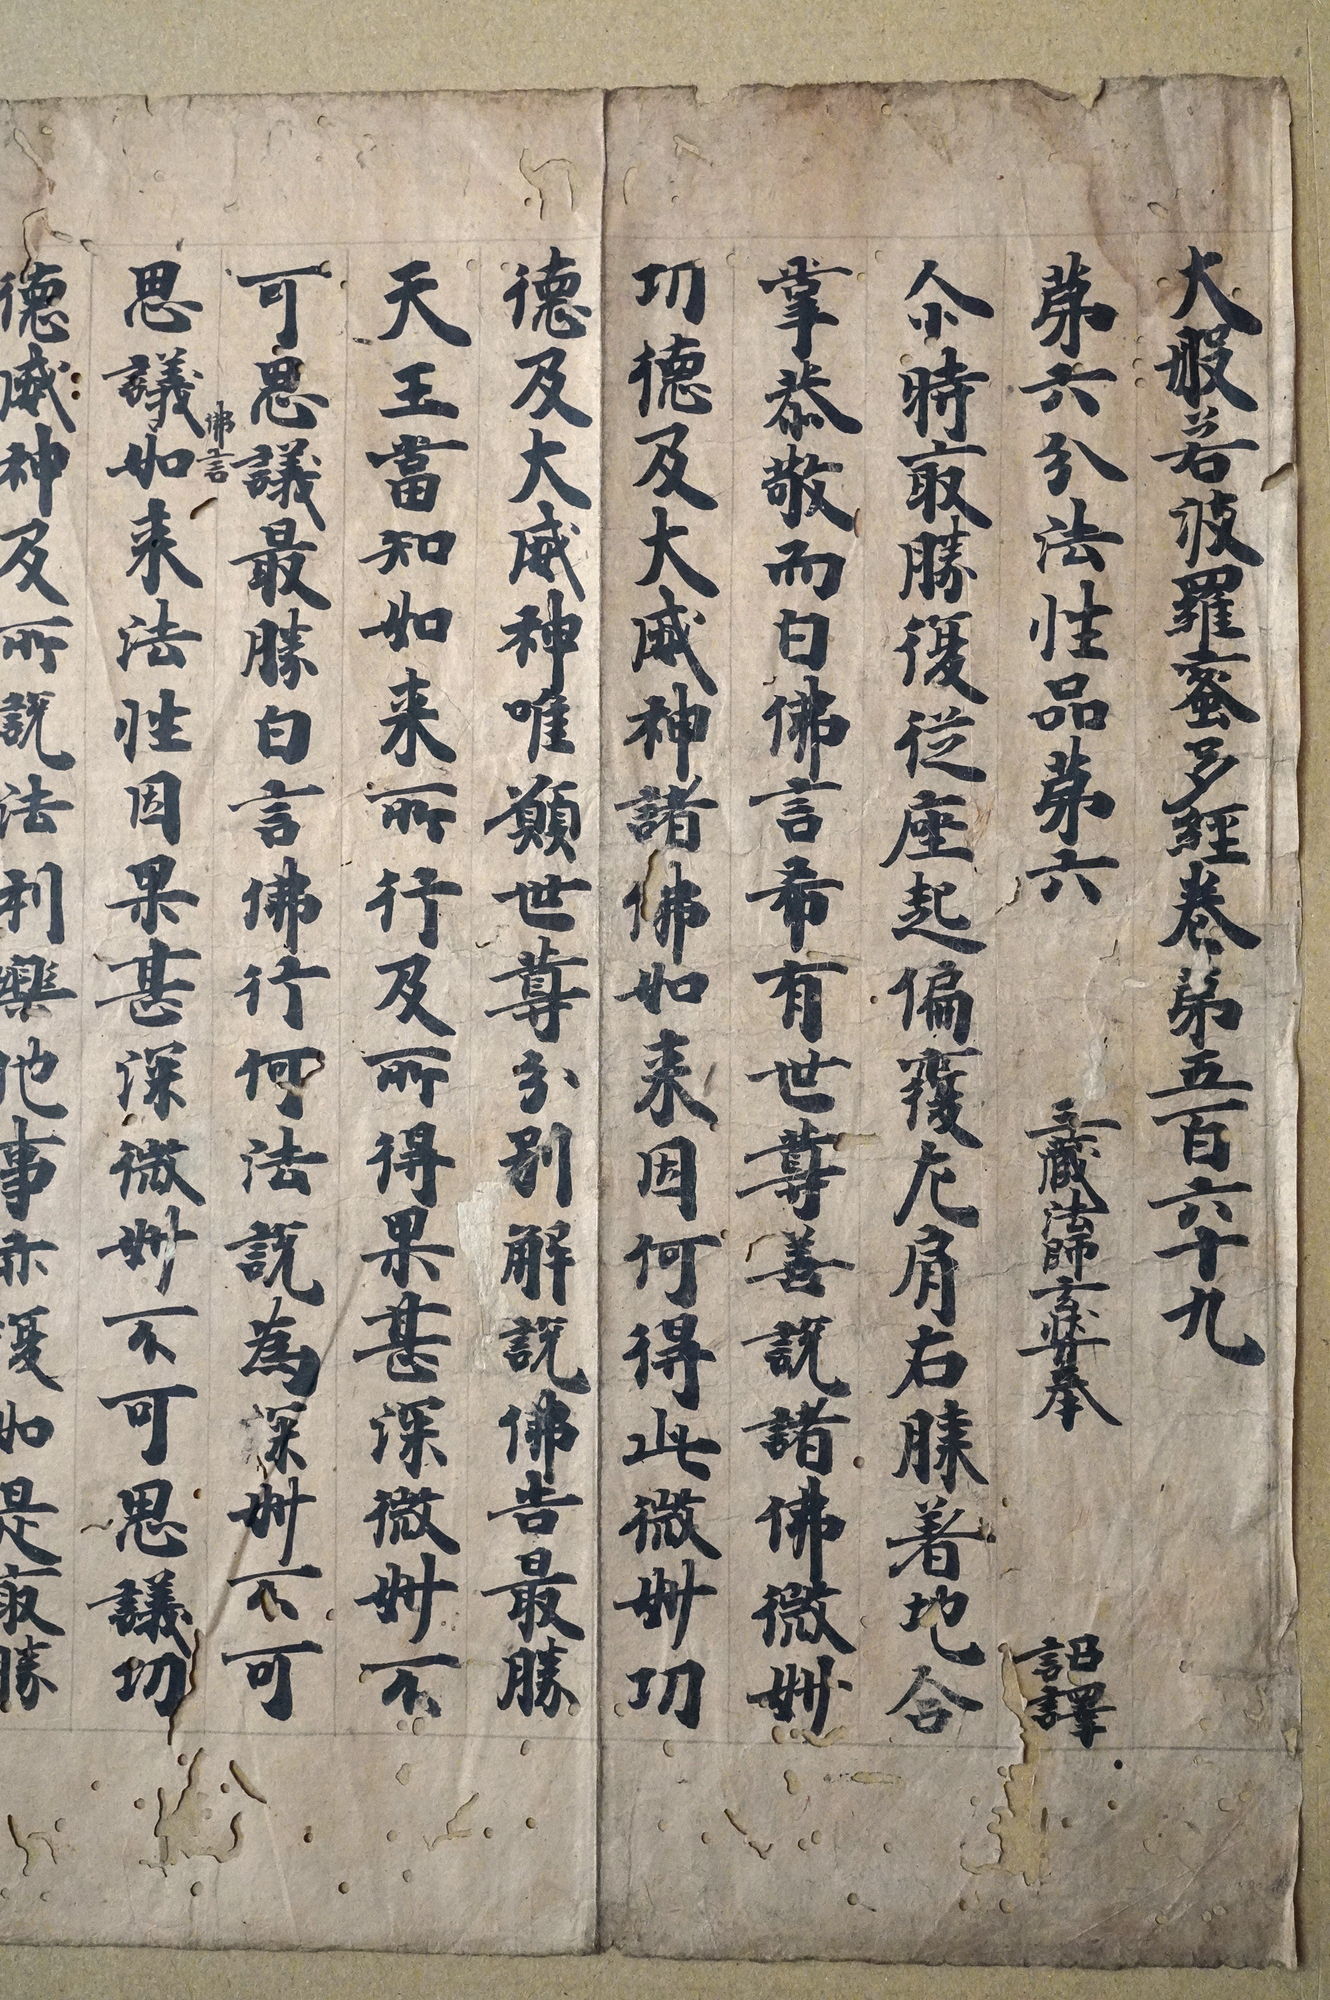 大般若波羅蜜多經卷第五百六十九
第六分法性品第六 三藏法師玄奘奉 詔譯
尒時㝡勝復從座起偏覆左肩右膝著地合
掌恭敬而白佛言希有世尊善說諸佛微妙
功德及大威神諸佛如来因何得此微妙功
德及大威神唯願世尊分別解說佛告最勝
天王當知如来所行及所得果甚深微妙不
可思議最勝白言佛行何法說為深妙不可
佛言
思議如来法性因果甚深微妙不可思議功
德威神及所說法利樂他事亦復如是㝡勝